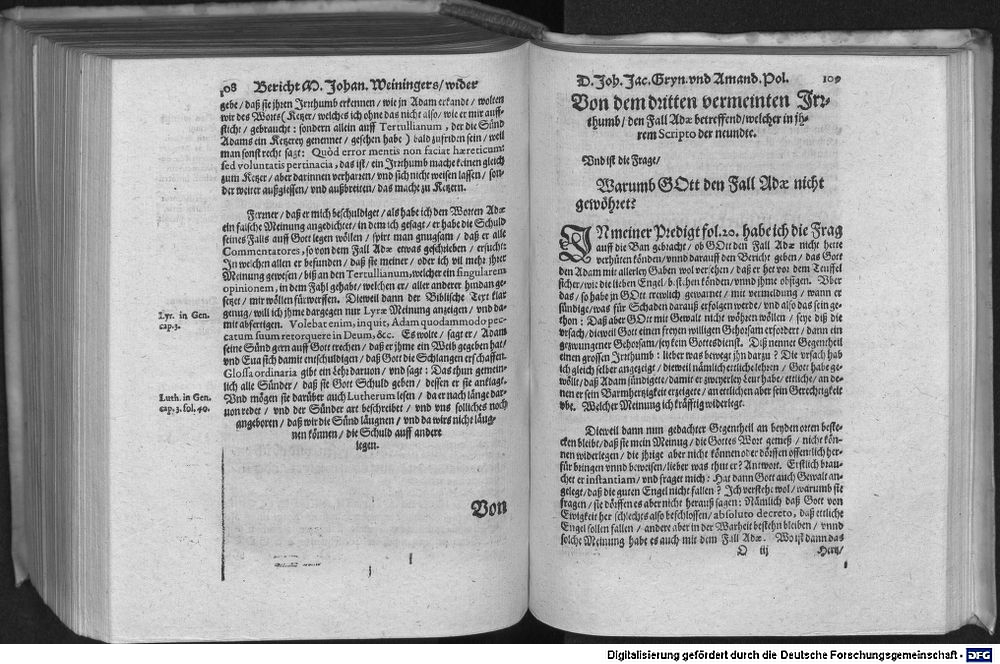 108 Bericht M. Johan. Weiningers/ wider
gebe/ daß sie jhren Irrthumb erkennen/ wie jn Adam erkandt/ wolten
wir des Worts (Ketzer/ welches ich ohne das nicht also/ wie er mir auff-
sticht/ gebraucht: sondern allein auff Tertullianum, der die Sünd
Adams ein Ketzerey genennet/ gesehen habe) bald zufriden sein/ weil
man sonst recht sagt: Quòd error mentis non faciat hæreticum:
sed voluntatis pertinacia, das ist/ ein Irrthumb mache keinen gleich
zum Ketzer/ aber darinnen verharren/ vnd sich nicht weisen lassen/ son-
der weiter außgiessen/ vnd außbreiten/ das macht zu Ketzern.
Ferrner/ daß er mich beschuldiget/ als habe ich den Worten Adæ
ein falsche Meinung angedichtet/ in dem ich gesagt/ er habe die Schuld
seines Falls auff Gott legen wöllen/ spürt man gnugsam/ daß er alle
Commentatores, so von dem Fall Adæ etwas geschrieben/ ersucht:
In welchen allen er befunden/ daß sie meiner/ oder ich vil mehr jhrer
Meinung gewesen/ biß an den Tertullianum, welcher ein singularem
opinionem, in dem Fahl gehabt/ welchen er/ aller anderer hindan ge-
setzt/ mir wöllen fürwerffen. Dieweil dann der Biblische Text klar
genug/ will ich jhme dargegen nur Lyræ Meinung anzeigen/ vnd da-
mit abfertigen. Volebat enim, inquit, Adam quodammodo pec-
catum suum retorquere in Deum, &c. Es wolte/ sagt er/ Adam
seine Sünd gern auff Gott rechen/ daß er jhme ein Weib gegeben hat/
vnd Eua sich damit entschuldigen/ daß Gott die Schlangen erschaffen.
Glossa ordinaria gibt ein Lehr daruon/ vnd sagt: Das thun gemein-
lich alle Sünder/ daß sie Gott Schuld geben/ dessen er sie anklagt.
Vnd mögen sie darüber auch Lutherum lesen/ da er nach länge dar-
uon redet/ vnd der Sünder art beschreibet/ vnd vns solliches noch
angeboren/ daß wir die Sünd läugnen/ vnd da wirs nicht läug-
nen können/ die Schuld auff andere
legen.
Lyr. in Gen.
cap. 3.
Luth. in Gen.
cap. 3. fol. 40.
Von
D. Joh. Jac. Gryn. vnd Amand. Pol. 109
Von dem dritten vermeinten Irr-
thumb/ den Fall Adæ betreffend/ welcher in jh-
rem Scripto der neundte.
Vnd ist die Frage/
Warumb GOtt den Fall Adæ nicht
gewöhret?
IN meiner Predigt fol. 20. habe ich die Frag
auff die Ban gebracht/ ob GOtt den Fall Adæ nicht hette
verhüten könden/ vnnd darauff den Bericht geben/ das Gott
den Adam mit allerley Gaben wol versehen/ daß er het vor dem Teuffel
sicher/ wie die lieben Engel/ bestehen könden/ vnnd jhme obsigen. Vber
das/ so habe jn GOtt trewlich gewarnet/ mit vermeldung/ wann er
sündige/ was für Schaden darauß erfolgen werde/ vnd also das sein ge-
thon: Daß aber GOtt mit Gewalt nicht wöhren wöllen/ seye diß die
vrsach/ dieweil Gott einen freyen willigen Gehorsam erfordert/ dann ein
gezwungener Gehorsam/ sey kein Gottesdienst. Diß nennet Gegentheil
einen grossen Irrthumb: lieber was bewegt jhn darzu? Die vrsach hab
ich gleich selber angezeigt/ dieweil nämlich ettliche lehren/ Gott habe ge-
wöllt/ daß Adam sündigete/ damit er zweyerley Leut habe/ ettliche/ an de-
nen er sein Barmhertzigkeit erzeigete/ an ettlichen aber sein Gerechtigkeit
vbe. Welcher Meinung ich kräfftig widerlege.
Dieweil dann nun gedachter Gegentheil an beyden orten beste-
cken bleibt/ daß sie mein Meinung/ die Gottes Wort gemeß/ nicht kön-
nen widerlegen/ die jhrige aber nicht können oder dörffen offentlich her-
für bringen vnnd beweisen/ lieber was thut er? Antwort. Erstlich brau-
chet er instantiam, vnd fraget mich: Hat dann Gott auch Gewalt an-
gelegt/ daß die guten Engel nicht fallen? Ich verstehe wol/ warumb sie
fragen/ sie dörffen es aber nicht herauß sagen: Nämlich daß Gott von
Ewigkeit her schlechts also beschlossen/ absoluto decreto, daß ettliche
Engel sollen fallen/ andere aber in der Warheit bestehn bleiben/ vnnd
solche Meinung habe es auch mit dem Fall Adæ. Wo ist dann das
O iij Hertz/
Digitalisierung gefördert durch die Deutsche Forschungsgemeinschaft - DFG